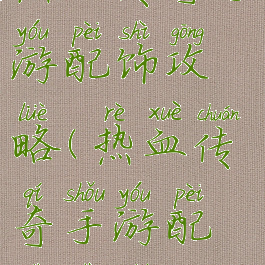 yóu pèi shì gōng
游配饰攻
lüè rè xuè chuán
略(热血传
qí shǒu yóu pèi
奇手游配